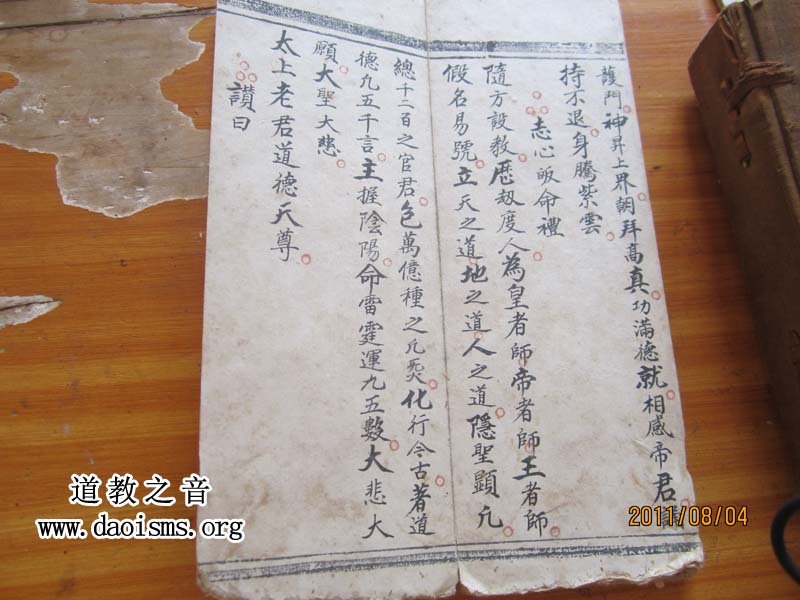 護門神昇上界朝拜高真功滿德就相感帝君
持不退身騰紫雲
志心皈命禮
隨方設教歷劫度人為皇者師帝者師王者師
假名易號立天之道地之道人之道隱聖顯凢
總千二百之官君包萬億種之凢炁化行今古著道
德九五千言主握陰陽命雷霆運九五數大悲大
願大聖大慈
太上老君道德天尊
讃曰
道教之音
www.daoisms.org
2011/08/04